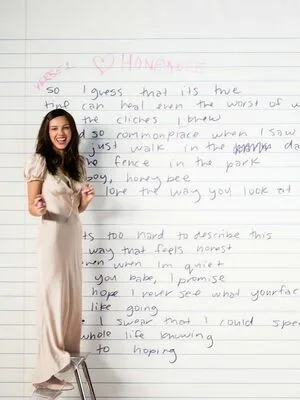 VERSE 1
♡ HONEYBEE
so I guess that its true
time can heal even the worst of w
the cliches I knew
d so commonplace when I saw
just walk in the da
he fence in the park
boy, honeybee
love the way you look at
ts too hard to describe this
way that feels honest
ven when Im quiet
you babe, I promise
hope I never see what your fac
like going
I swear that I could spe
whole life knowing
to hoping